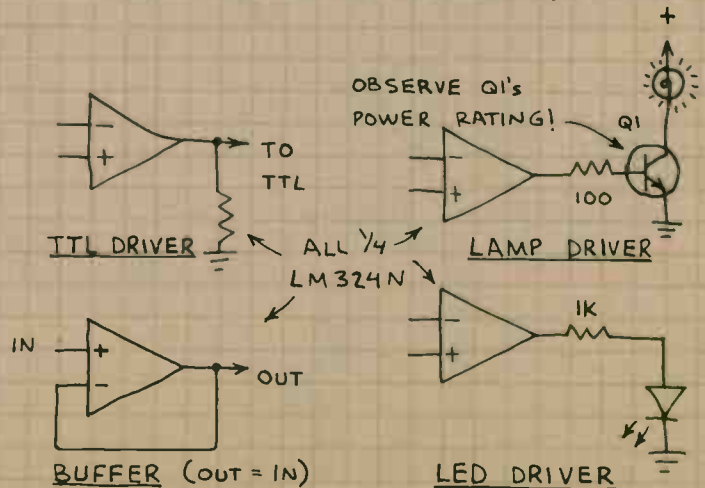 +
OBSERVE Q1's
POWER RATING!
Q1
−
+
TO
TTL
−
+
100
TTL DRIVER
ALL 1/4
LM324N
LAMP DRIVER
IN
+
−
OUT
−
+
1K
BUFFER (OUT = IN)
LED DRIVER